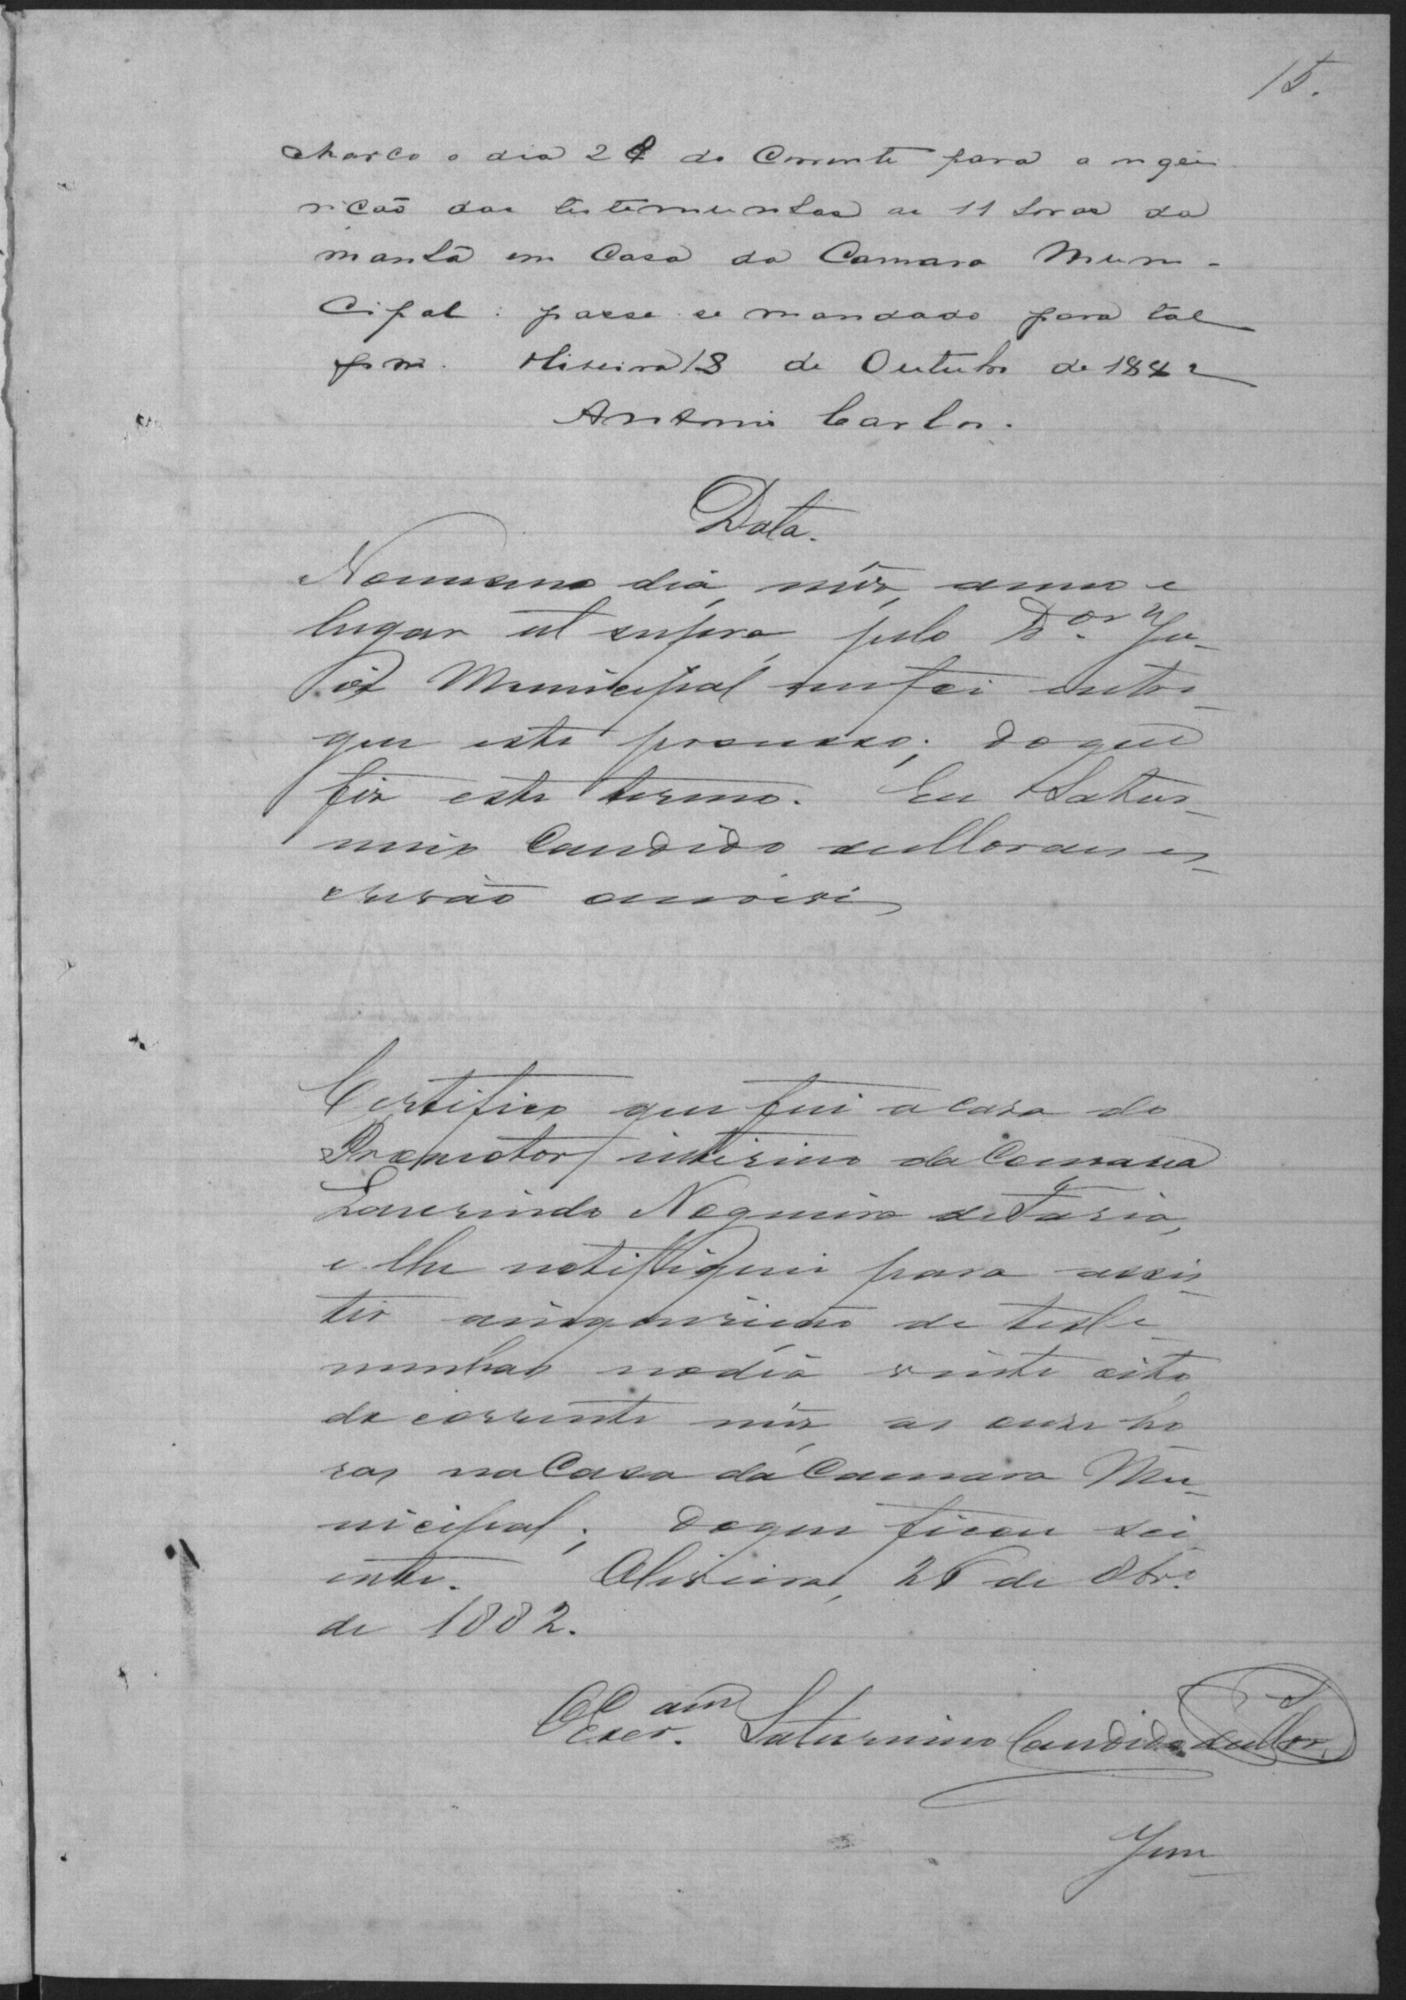 15.
Marco o dia 28 do Corrente para a inqui
rição das testemunhas as 11 horas da
manhã em Casa da Camara Muni-
cipal : passe se mandado para tal
fim. Oliveira 18 de Outubro de 1882
Antonio Carlos.
Data.
No mesmo dia, mês, anno e
lugar ut supra, pelo Dor. Ju-
iz Municipal me foi entre-
gue este processo; do que
fiz este termo. Eu Satur-
nino Candido de Moraes es-
crivão escrevi
Certifico que fui a casa do
Promotor interino da Comarca
Laurindo Nogueira de Faria,
e lhe notifiquei para assis-
tir a inquirição de teste-
munhas no dia vinte oito
do corrente mês as onze ho
ras na Casa da Camara Mu-
nicipal; do que ficou sci
ente. Oliveira, 26 de 8br.o
de 1882.
O Escr.am Saturnino Candido de Mor.
Jun